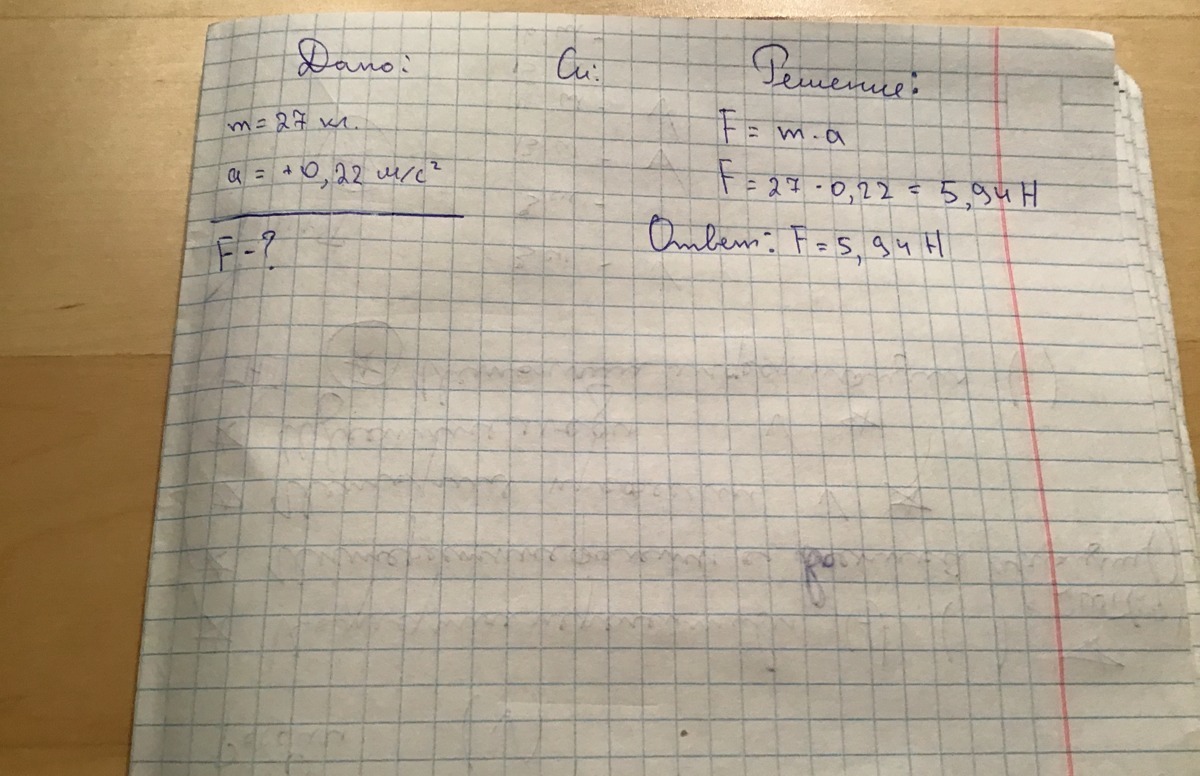 Дано:
m = 27 кг.
a = +0,22 м/с²
F - ?
Си:
Решение:
F = m · a
F = 27 · 0,22 = 5,94 Н
Ответ: F = 5,94 Н